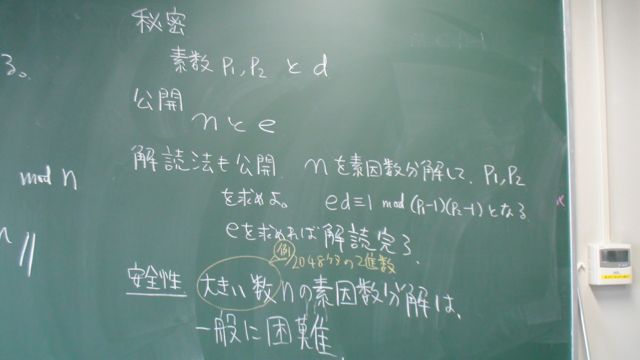 る。
mod n
n //
秘密
素数 P₁, P₂ と d
公開
n と e
解読法も公開 nを素因数分解して、P₁, P₂
を求めよ。 ed≡1 mod (P₁-1)(P₂-1) となる
eを求めれば解読完了.
例 2048ケタの2進数
安全性 大きい数nの素因数分解は、
一般に困難.